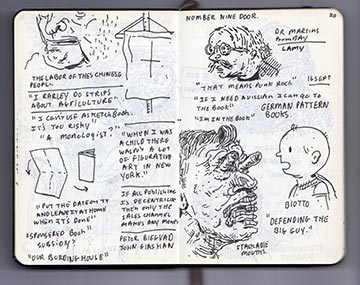 THE LABOR OF THE SCHINESE
PEOPLE.
"I RARLEY DO STRIPS
ABOUT AGRICULTURE"
"I CAN'T USE A SKETCHBOOK.
IT'S TOO RISKY"
"A MONOLOGIST?"
"WHEN I WAS
A CHILD THERE
WASN'T A LOT
OF FIGURATIVE
ART IN NEW
YORK."
"PUT THE DATE ON IT
AND LEAVE IT AT HOME
WHEN IT'S DONE"
"SPONSERED BOOK"
SUBSIDY?
"OUR BUILDING HOUSE"
IF ALL PUBLISHING
IS DECENTRALIZED
THEN ONLY THE
SALES CHANNEL
MAKES ANY MONEY
PETER BLEGVAD
JOHN
NUMBER NINE DOOR.
20
DR MARTINS
BOMBAY
LAMY
"THAT MEANS PUNK ROCK"
16 SEPT
"IF I NEED A VILLIAN I CAN GO TO
THE BOOK"
GERMAN PATTERN
BOOKS.
"I'M IN THE BOOK"
BIOTTO
"DEFENDING THE
BIG GUY."
STACKABLE
MOUTHS.